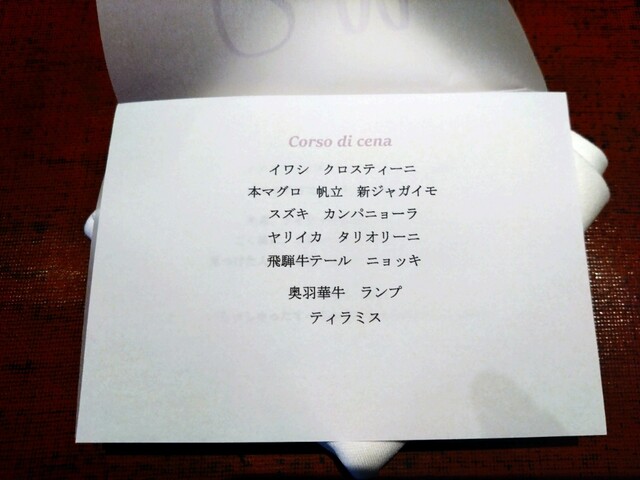 Corso di cena
イワシ　クロスティーニ
本マグロ　帆立　新ジャガイモ
スズキ　カンパニョーラ
ヤリイカ　タリオリーニ
飛騨牛テール　ニョッキ
奥羽華牛　ランプ
ティラミス